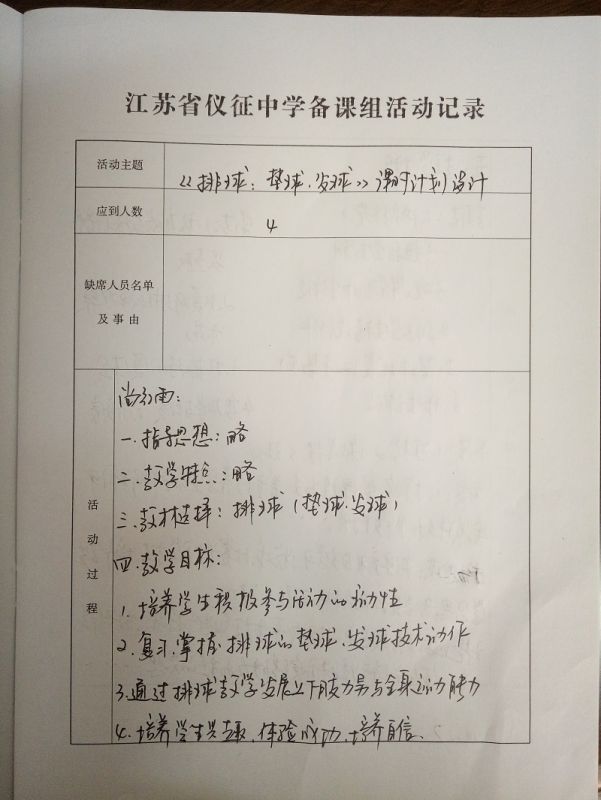 江苏省仪征中学备课组活动记录
活动主题
《排球：垫球、发球》课时计划设计
应到人数
4
缺席人员名单
及事由
活动过程
一.指导思想：略
二.教学特点：略
三.教材选择：排球（垫球、发球）
四.教学目标：
1.培养学生积极参与活动的
2.复习、掌握排球的垫球、发球技术动作
3.通过排球教学发展上下肢力量与全身运动能力
4.培养学生兴趣、体验成功、培养自信、